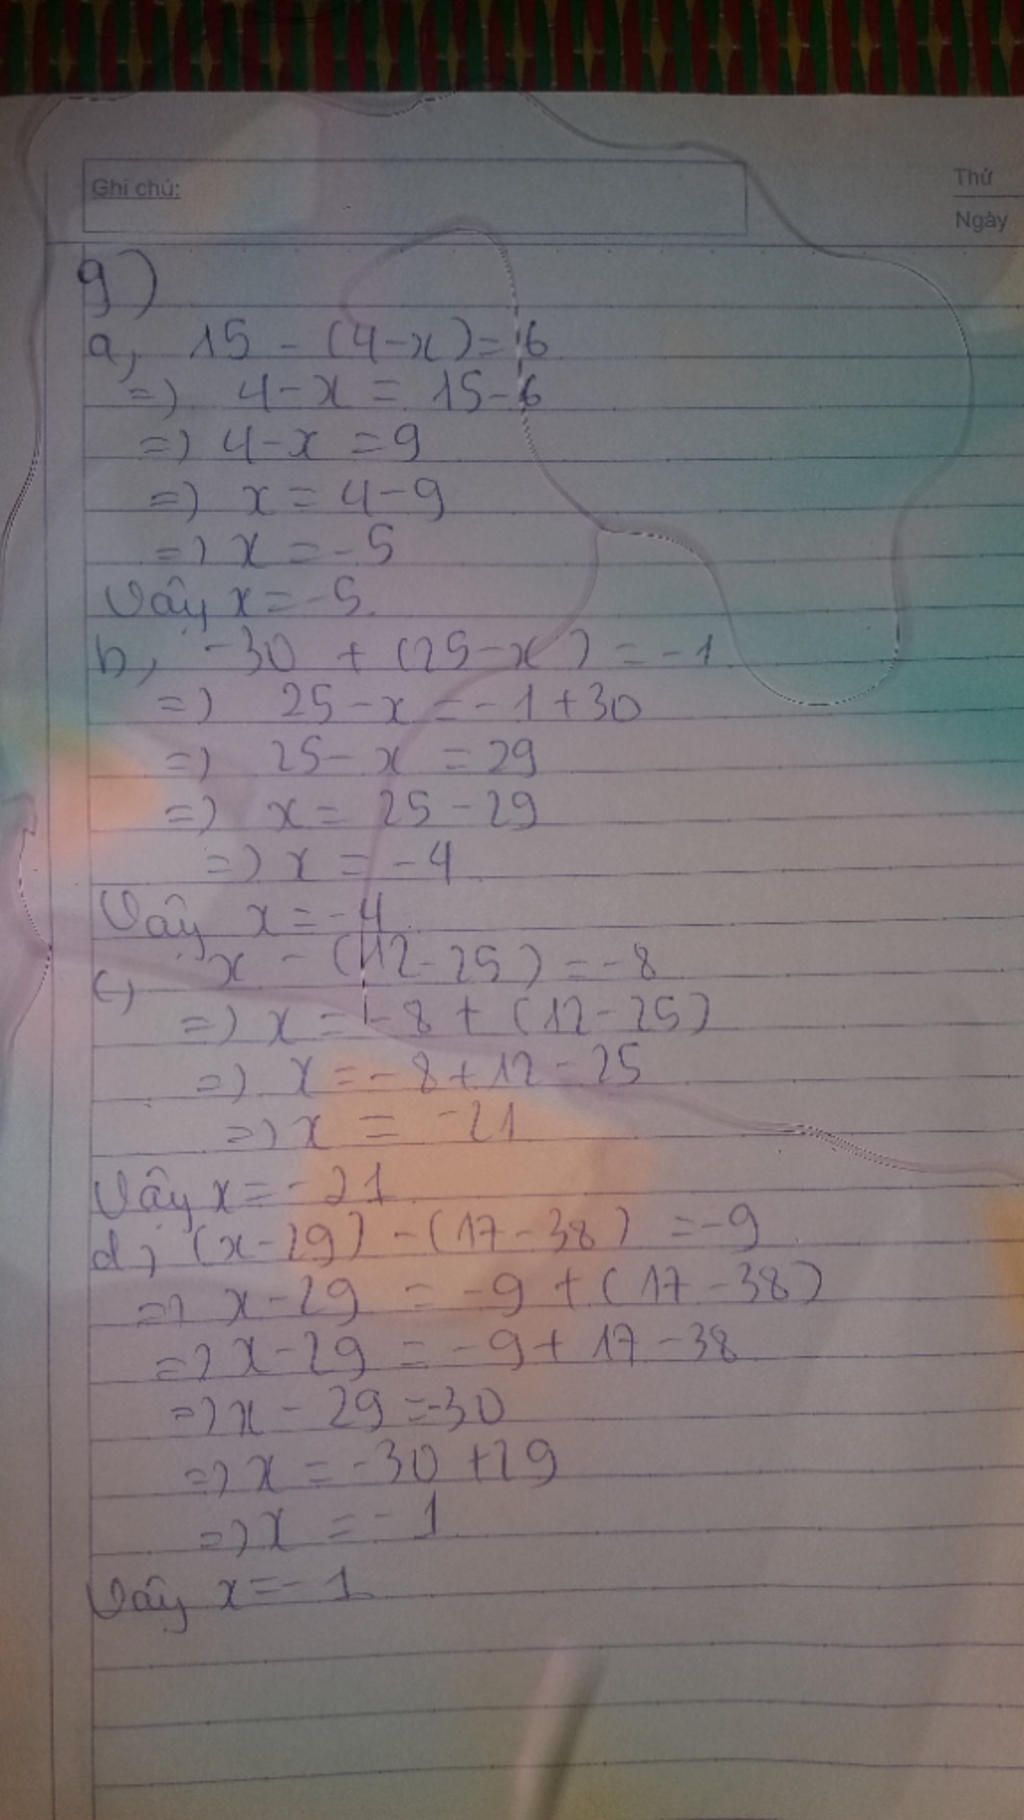 Ghi chú:
Thứ
Ngày
9)
a, 15 - (4-x) = 6
=) 4-x = 15-6
=) 4-x = 9
=) x = 4-9
=) x = -5
Vậy x = -5.
b, -30 + (25-x) = -1
=) 25-x = -1+30
=) 25-x = 29
=) x = 25-29
=) x = -4
Vậy x = -4
c, x - (12-25) = -8
=) x = -8 + (12-25)
=) x = -8+12-25
=) x = -21
Vậy x = -21
d, (x-29) - (17-38) = -9
=) x-29 = -9 + (17-38)
=) x-29 = -9+17-38
=) x-29 = -30
=) x = -30+29
=) x = -1
Vậy x = -1